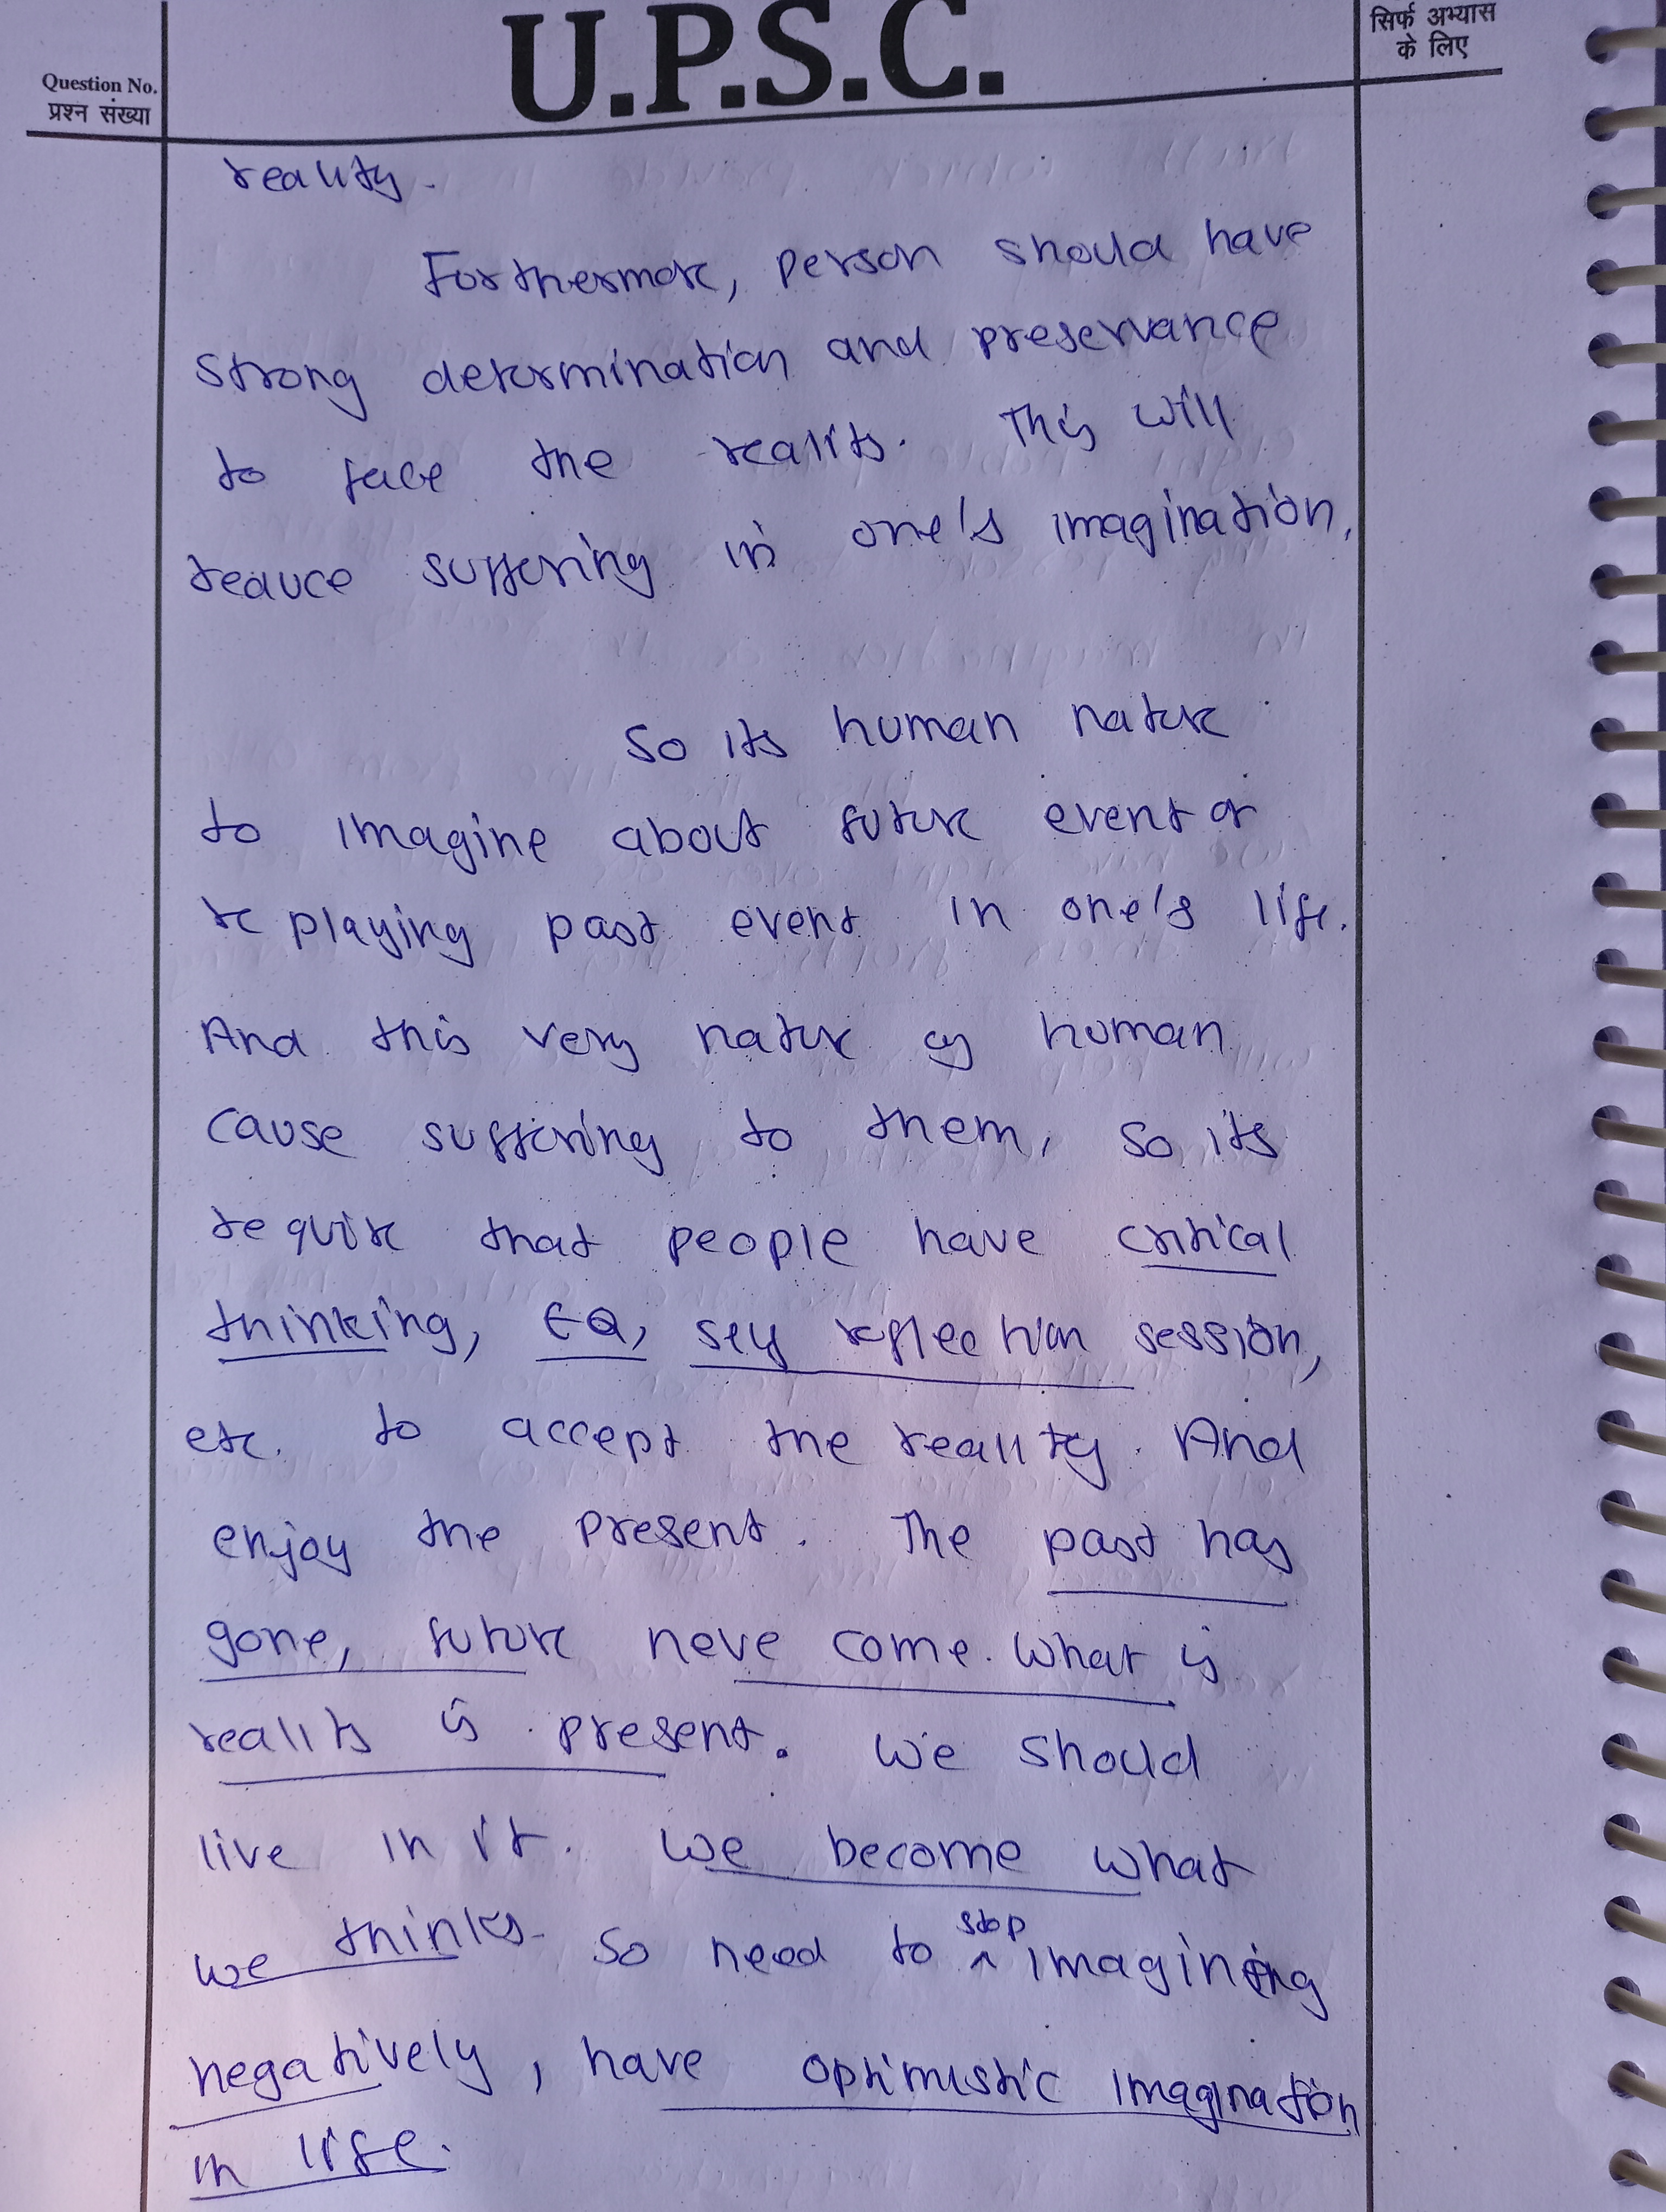 Question No.
प्रश्न संख्या
U.P.S.C.
सिर्फ अभ्यास
के लिए
reality.
Forthermore, person should have
strong determination and preservance
to face the reality. This will
reduce suffering in one's imagination.
So its human nature
to imagine about future event or
replaying past event in one's life.
And this very nature of human
cause suffering to them, so its
require that people have critical
thinking, EQ, self reflection session,
etc. to accept the reality. And
enjoy the present. The past has
gone, future neve come. What is
reality is present. We should
live in it. We become what
we thinks. So need to stop imagining
negatively, have optimistic imagination
in life.